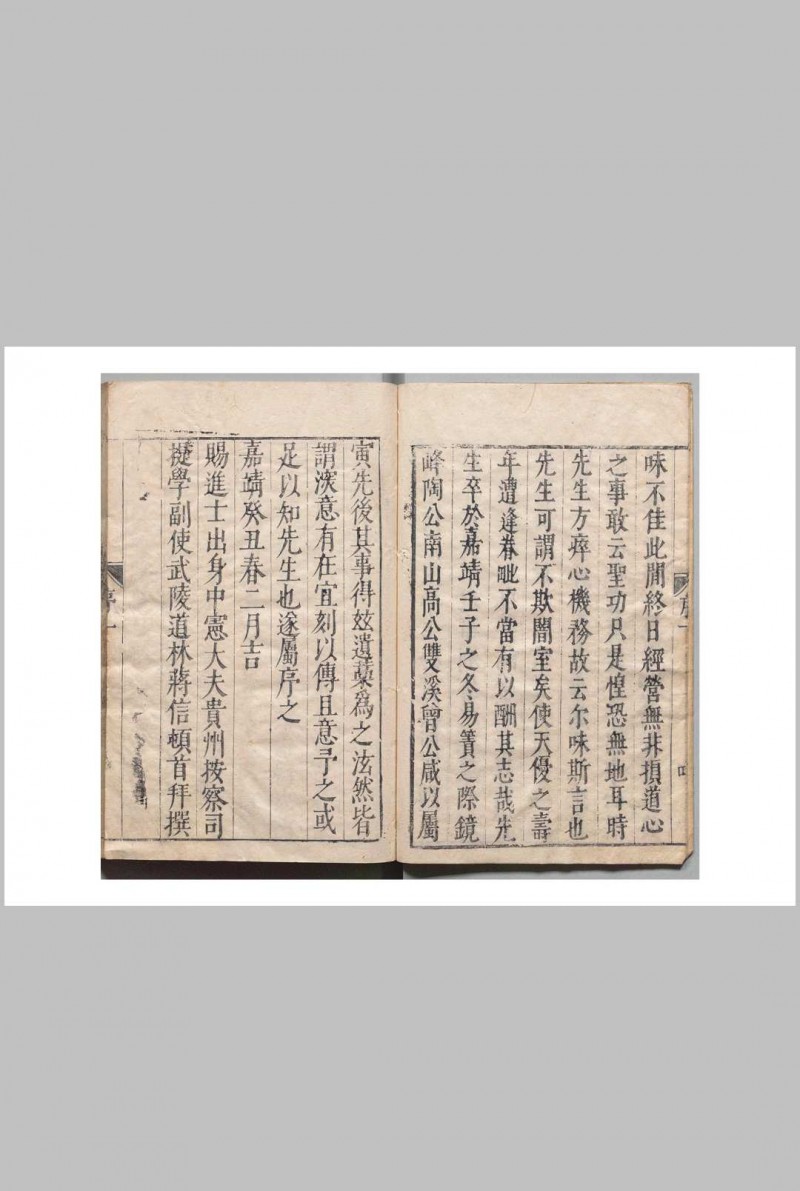 味不佳此間終日經營無非損道心
之事敢云聖功只是惶恐無地耳時
先生方瘁心機務故云尔味斯言也
先生可謂不欺闇室矣使天優之壽
年遭逢眷毗不當有以酬其志哉先
生卒於嘉靖壬子之冬易簀之際鏡
峰陶公南山高公雙溪曾公咸以屬
四
寅先後其事得玆遺藁爲之泫然皆
謂深意有在宜刻以傳且意予之或
足以知先生也遂屬序之
嘉靖癸丑春二月吉
賜進士出身中憲大夫貴州按察司
提學副使武陵道林蔣信頓首拜撰
序一